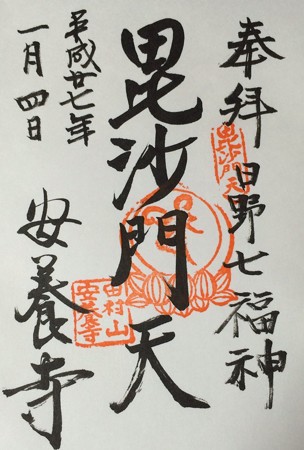 奉拝 日野七福神
毘沙門天
毘沙門天
平成廿七年
一月四日
安養寺
田村山
安養寺